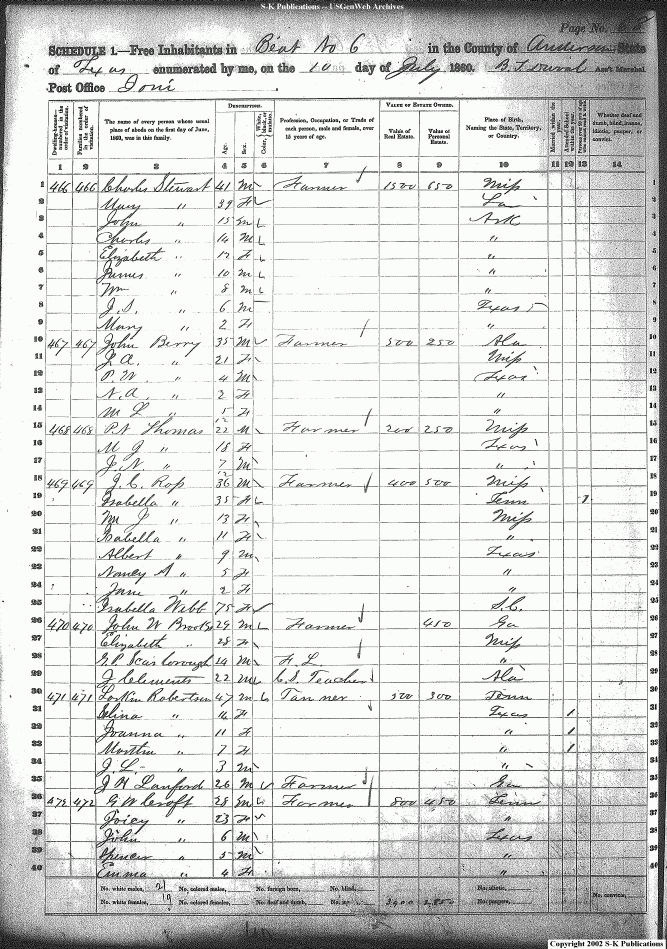 S-K Publications -- USGenWeb Archives
Page No.
SCHEDULE 1.—Free Inhabitants in Beat No 6 in the County of Anderson State
of Texas enumerated by me, on the 10 day of July 1860. Ass't Marshal
Post Office
Dwelling-houses— numbered in the order of visitation.
Families numbered in the order of visitation.
The name of every person whose usual place of abode on the first day of June, 1860, was in this family.
DESCRIPTION.
Age.
Sex.
Color, White, black, or mulatto.
Profession, Occupation, or Trade of each person, male and female, over 15 years of age.
VALUE OF ESTATE OWNED.
Value of Real Estate.
Value of Personal Estate.
Place of Birth, Naming the State, Territory, or Country.
Married within the year.
Attended School within the year.
Whether deaf and dumb, blind, insane, idiotic, pauper, or convict.
1 2 3 4 5 6 7 8 9 10 11 12 13 14
1 466 466 Charles Stewart 41 M Farmer 1500 650 Miss 1
2 Mary " 39 F La 2
3 John " 15 M Ark 3
4 Charles " 14 M " 4
5 Elizabeth " 12 F " 5
6 James " 10 M " 6
7 Wm " 8 M " 7
8 J. S. " 6 M Texas 8
9 Mary " 2 F " 9
10 467 467 John Berry 35 M Farmer 500 250 Ala 10
11 " 21 F Miss 11
12 P. W. " 4 M Texas 12
13 N. A. " 2 F " 13
14 M L " F " 14
15 468 468 P. N Thomas 22 M Farmer 200 250 Miss 15
16 M J " 18 F Texas 16
17 J. N. " M " 17
18 469 469 J. C. Ross 36 M Farmer 400 500 Miss 18
19 Isabella " 35 F Tenn 1 19
20 M J " 13 F Miss 20
21 Isabella " 11 F " 21
22 Albert " 9 M Texas 22
23 Nancy A " 5 F " 23
24 Jane " 2 F " 24
25 Isabella Webb 75 F S. C. 25
26 470 470 John W Brooks 29 M Farmer 450 Ga 26
27 Elizabeth " 28 F Miss 27
28 Scarborough 24 M F. L. " 28
29 J Clements 22 M C. S. Teacher Ala 29
30 471 471 Larkin Robertson 47 M Tanner 500 300 Tenn 30
31 " 14 F Texas 1 31
32 Joanna " 11 F " 1 32
33 Martha " 7 F " 1 33
34 J. L. " 3 M " 34
35 Lanford 26 M Farmer Ga 35
36 472 472 G W Croft 28 M Farmer 800 450 Tenn 36
37 " 23 F " 37
38 John " 6 M Texas 38
39 Spencer " 5 M " 39
40 Emma " 4 F " 40
No. white males, 21 No. colored males, No. foreign born, No. blind, No. idiotic,
No. white females, 19 No. colored females, No. deaf and dumb, No. paupers, No. convicts,
Copyright 2002 S-K Publications